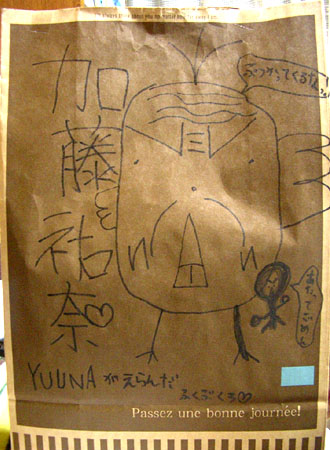 加藤祐奈♡
YUUNAがえらんだ
ふくぶくろ♡
Passez une bonne journée!